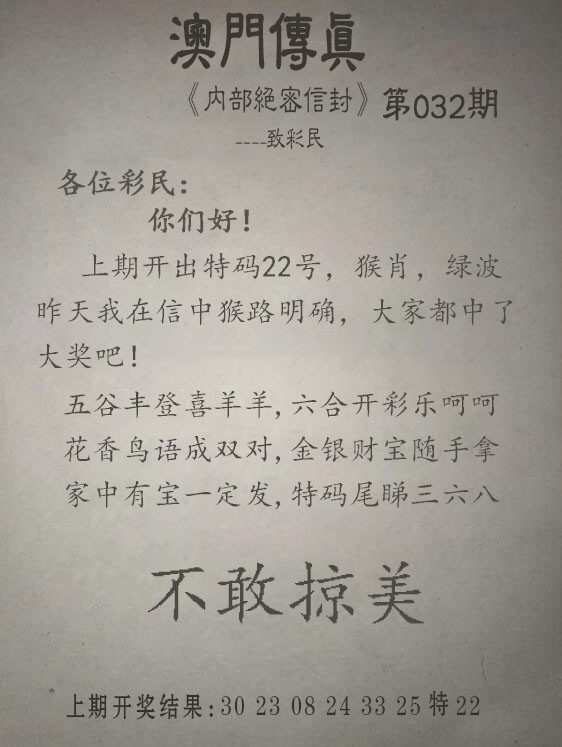 澳門傳真
《内部絕密信封》第032期
----致彩民
各位彩民:
你们好!
上期开出特码22号，猴肖，绿波
昨天我在信中猴路明确，大家都中了
大奖吧!
五谷丰登喜羊羊,六合开彩乐呵呵
花香鸟语成双对,金银财宝随手拿
家中有宝一定发,特码尾睇三六八
不敢掠美
上期开奖结果:30 23 08 24 33 25特22